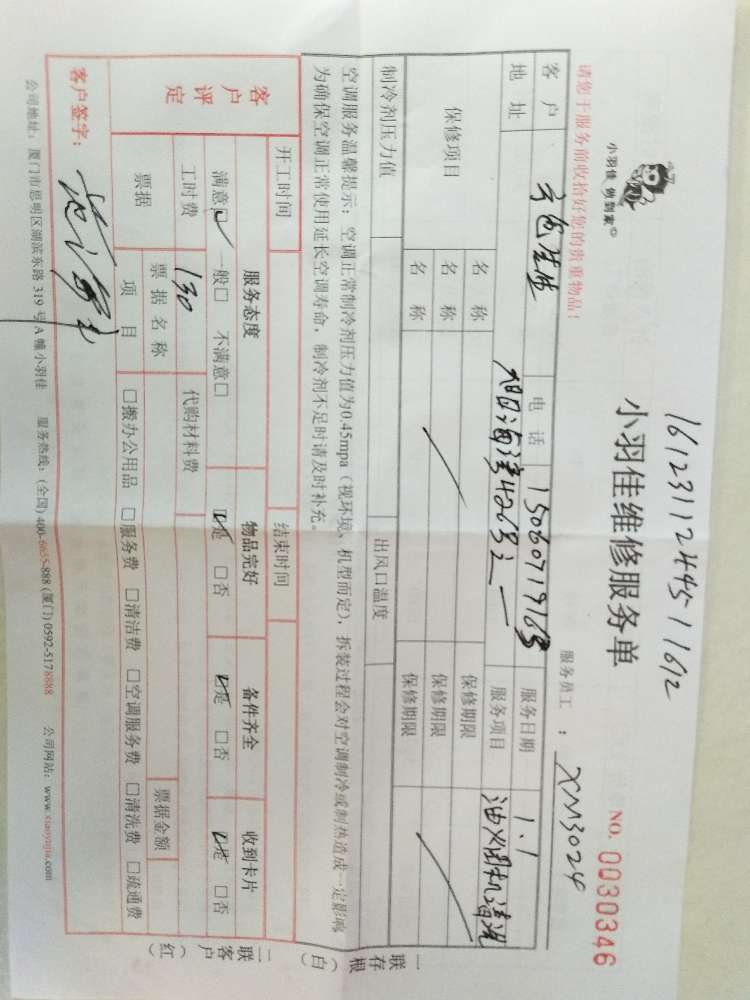 1612311244511612
小羽佳 做到家
小羽佳维修服务单
NO. 0030346
请您于服务前收拾好您的贵重物品！
服务员工 ： XM3024
客户 电话 15060719168 服务日期 1.1
地址 旭日海湾426号之一 服务项目 油烟机清洗
保修项目 名称 保修期限
名称 保修期限
名称 保修期限
制冷剂压力值 出风口温度
空调服务温馨提示：空调正常制冷剂压力值为0.45mpa（视环境、机型而定），拆装过程会对空调制冷或制热造成一定影响
为确保空调正常使用延长空调寿命，制冷剂不足时请及时补充。
开工时间 结束时间
客户评定 服务态度 物品完好 备件齐全 收到卡片
满意☑ 一般□ 不满意□ ☑是 □否 ☑是 □否 ☑是 □否
工时费 130 代购材料费
票据 票据名称 票据金额
项目 □搬办公用品 □服务费 □清洁费 □空调服务费 □清洗费 □疏通费
客户签字：
公司地址：厦门市思明区湖滨东路 319 号 A 幢小羽佳 服务热线：(全国) 400-6655-888 (厦门) 0592-5178888 公司网站：www.xiaoyujia.com
一联存根（白）
二联客户（红）